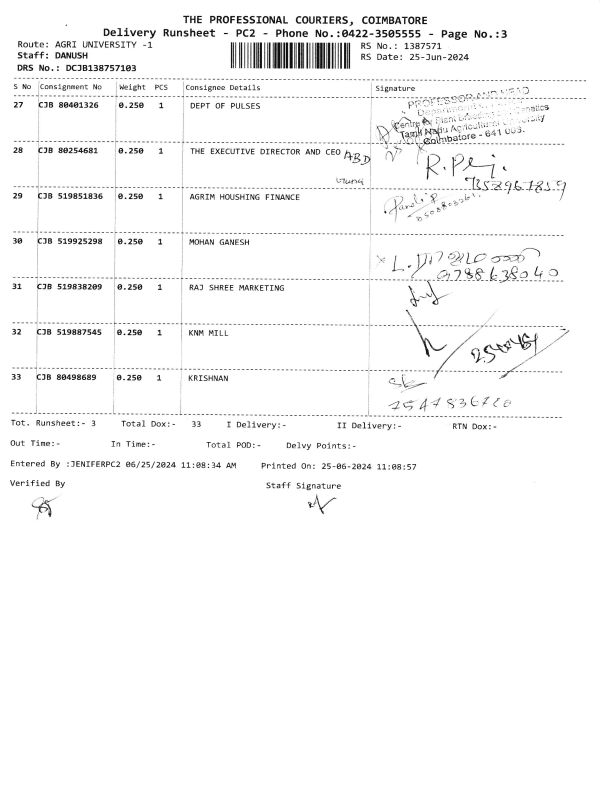 THE PROFESSIONAL COURIERS, COIMBATORE
Delivery Runsheet - PC2 - Phone No.:0422-3505555 - Page No.:3
Route: AGRI UNIVERSITY -1 RS No.: 1387571
Staff: DANUSH RS Date: 25-Jun-2024
DRS No.: DCJB138757103
S No Consignment No Weight PCS Consignee Details Signature
27 CJB 80401326 0.250 1 DEPT OF PULSES
PROFESSOR AND HEAD
Centre for Plant Breeding and Genetics
Tamil Nadu Agricultural University
Coimbatore - 641 003.
28 CJB 80254681 0.250 1 THE EXECUTIVE DIRECTOR AND CEO ABD
29 CJB 519851836 0.250 1 AGRIM HOUSHING FINANCE
30 CJB 519925298 0.250 1 MOHAN GANESH
9788638040
31 CJB 519838209 0.250 1 RAJ SHREE MARKETING
32 CJB 519887545 0.250 1 KNM MILL
33 CJB 80498689 0.250 1 KRISHNAN
Tot. Runsheet:- 3 Total Dox:- 33 I Delivery:- II Delivery:- RTN Dox:-
Out Time:- In Time:- Total POD:- Delvy Points:-
Entered By :JENIFERPC2 06/25/2024 11:08:34 AM Printed On: 25-06-2024 11:08:57
Verified By Staff Signature